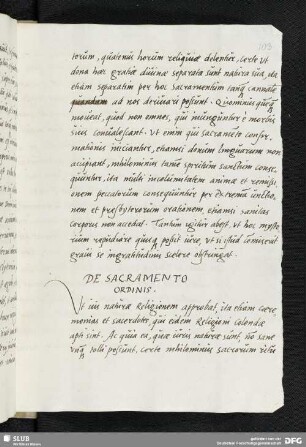 torum, quatenus horum reliquiæ delentur, certe ut
dona hæc gratiæ diuinæ separata sunt natura sua, ita
etiam separatim per hoc Sacramentum tanq̃ cannale
ad nos deriuari possunt. Quominus
moueat, quod non omnes, qui inunguntur e morbis
sui conualescant. Vt enim qui sacramento confir-
mationis initiantur, etiamsi donum linguarum non
accipiant, nihilominus tamen spiritum sanctum conse-
quuntur, ita multi incolumitatem animæ et remissi-
onem peccatorum consequuntur per extremam unctio-
nem et præsbyterorum orationem, etiamsi sanitas
corporis non accedat. Tantum igitur abest, ut hoc myste-
rium repudiare possit iure, ut si id contemserit
graui se ingratitudinis scelere obstringat.
DE SACRAMENTO
ORDINIS.
Vt ius naturæ Religionem approbat, ita etiam cære-
monias et sacerdotes, qui eidem Religioni colendæ
apti sint. Ac quia ea, quæ iuris naturæ sunt, no sane
tolli possunt, certe nihilominus sacrorum ritus
SLUB
DFG